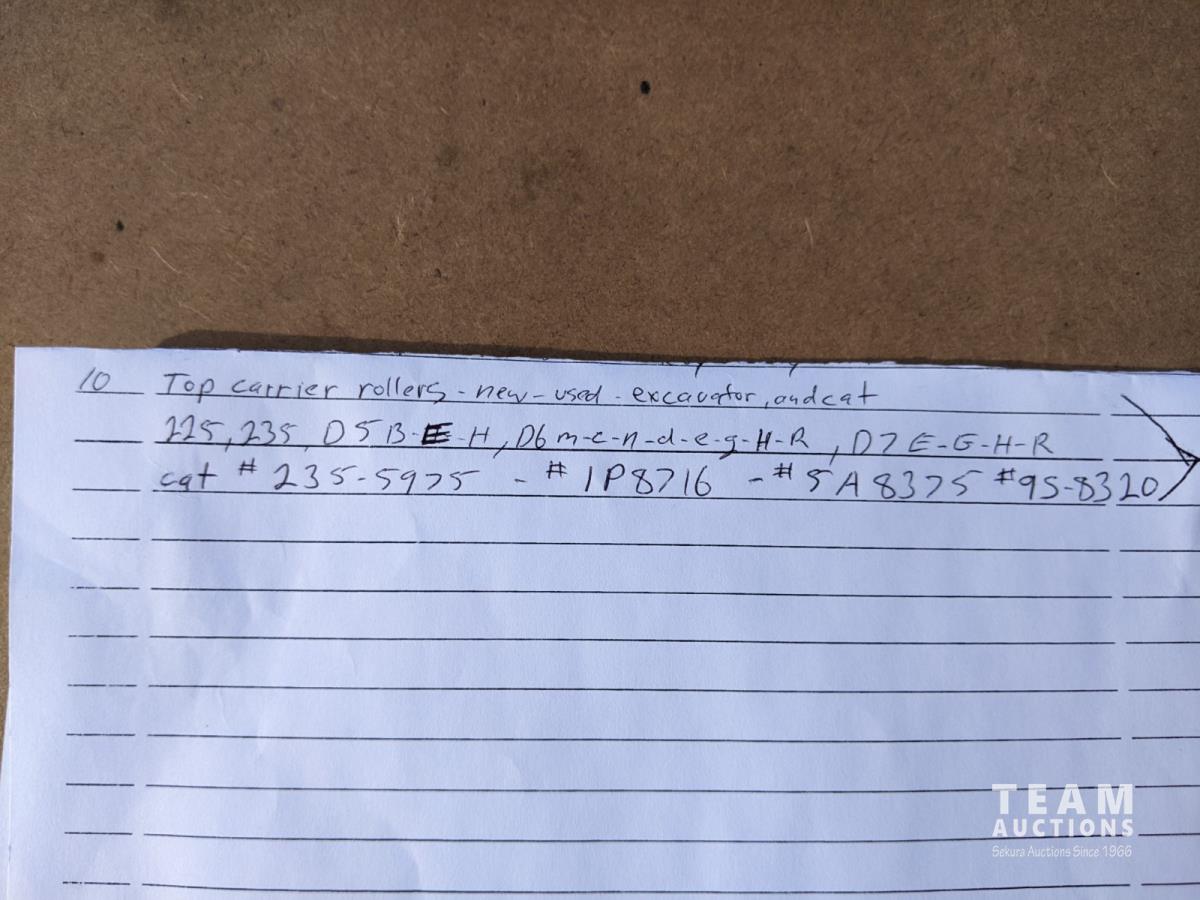 10 Top carrier rollers - new - used - excavator, and cat
225, 235, D5B-E-H, D6 m-c-n-d-e-g-H-R, D7 E-G-H-R
cat # 235-5975 - # 1P8716 - # 5A8375 #9S-8320
TEAM
AUCTIONS
Sekura Auctions Since 1966